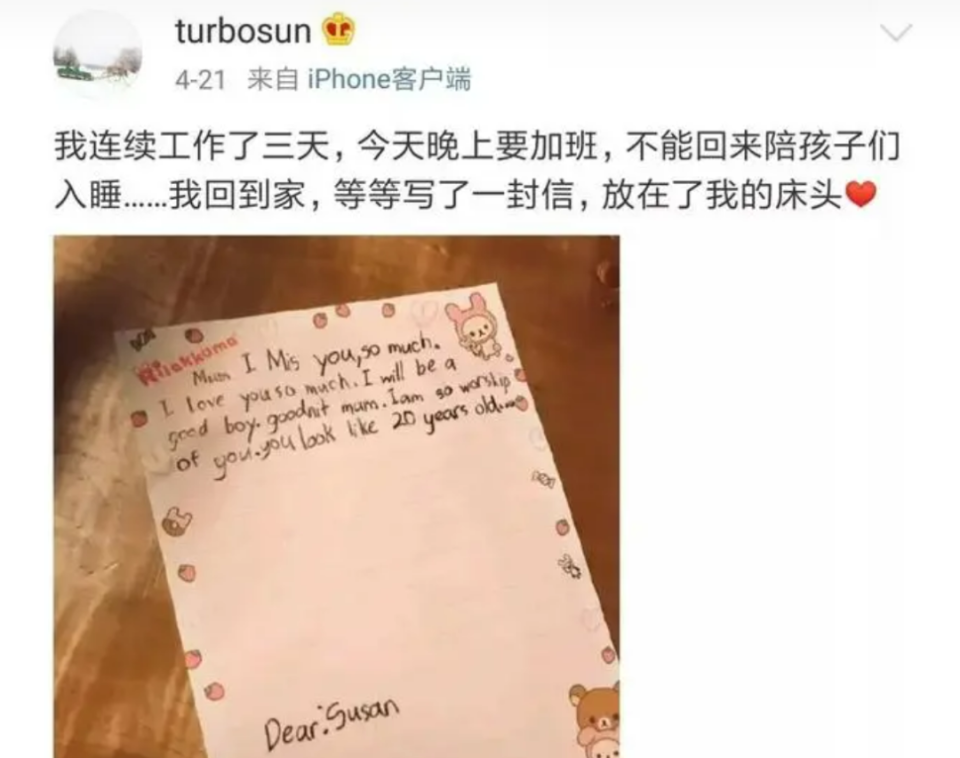 turbosun
4-21 来自 iPhone客户端
我连续工作了三天，今天晚上要加班，不能回来陪孩子们
入睡……我回到家，等等写了一封信，放在了我的床头
Rilakkuma
Mum I Mis you,so much.
I love you so much. I will be a
good boy. goodnit mum. I am so worship
of you. you look like 20 years old....
Dear:Susan